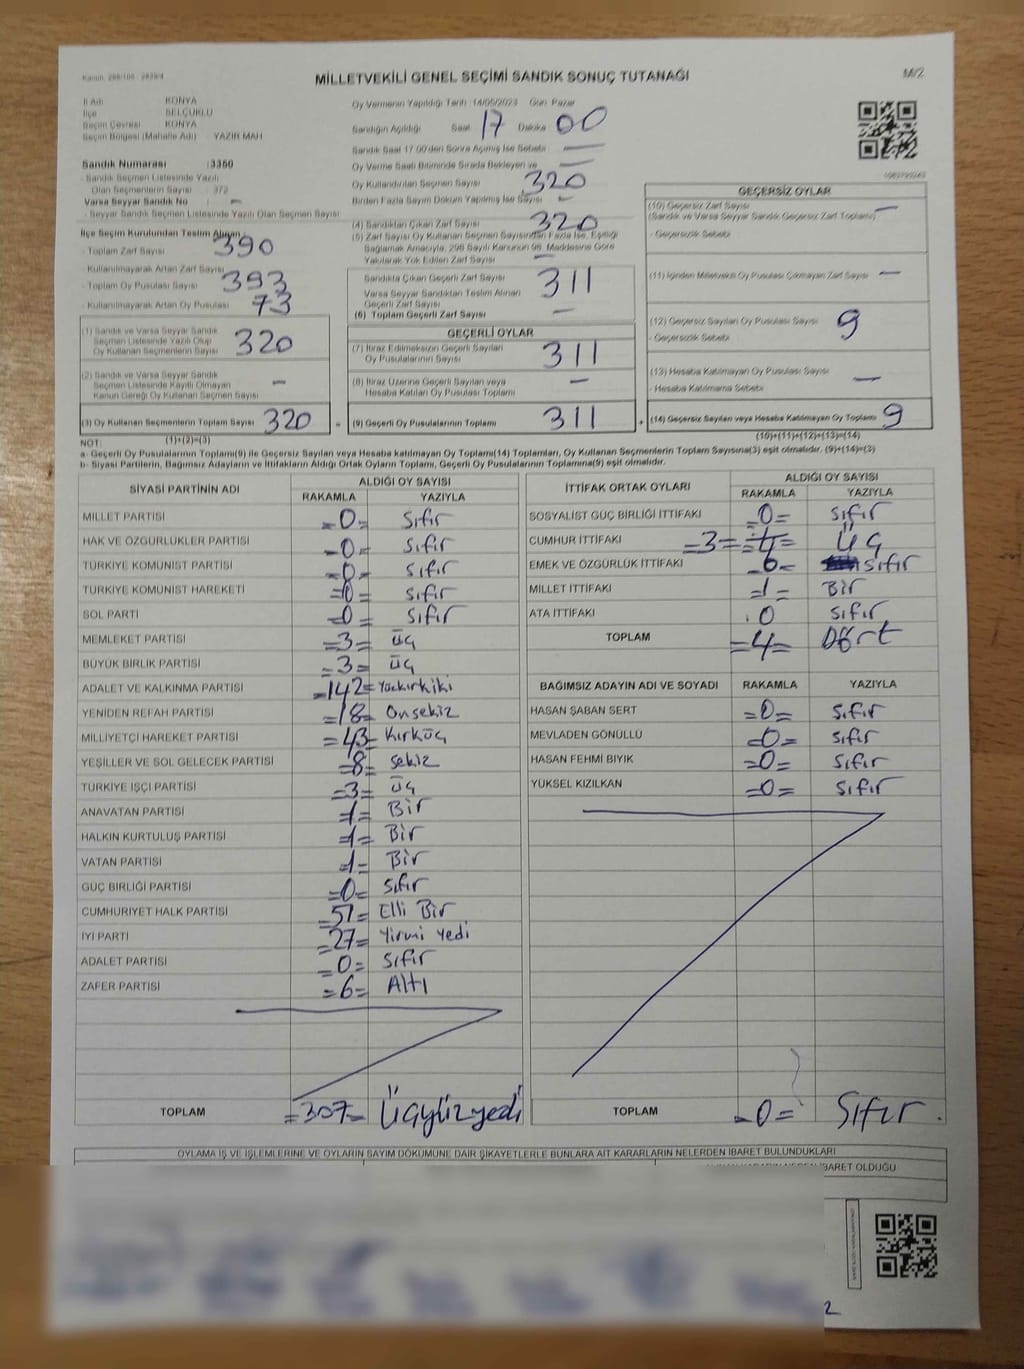 Kanun: 298/105 - 2839/4
MİLLETVEKİLİ GENEL SEÇİMİ SANDIK SONUÇ TUTANAĞI
M/2
İl Adı KONYA
İlçe SELÇUKLU
Seçim Çevresi KONYA
Seçim Bölgesi (Mahalle Adı) YAZIR MAH
Sandık Numarası :3350
- Sandık Seçmen Listesinde Yazılı
Olan Seçmenlerin Sayısı : 372
Varsa Seyyar Sandık No –
- Seyyar Sandık Seçmen Listesinde Yazılı Olan Seçmen Sayısı
İlçe Seçim Kurulundan Teslim Alınan
- Toplam Zarf Sayısı 390
- Kullanılmayarak Artan Zarf Sayısı
- Toplam Oy Pusulası 393
- Kullanılmayarak Artan Oy Pusulası 73
(1) Sandık ve Varsa Seyyar Sandık
Seçmen Listesinde Yazılı Olup
Oy Kullanan Seçmenlerin Sayısı 320
(2) Sandık ve Varsa Seyyar Sandık
Seçmen Listesinde Kayıtlı Olmayan
Kanun Gereği Oy Kullanan Seçmen Sayısı –
(3) Oy Kullanan Seçmenlerin Toplam Sayısı 320 =
(1)+(2)=(3)
Oy Vermenin Yapıldığı Tarih :14/05/2023 Gün: Pazar
Sandığın Açıldığı Saat 17 Dakika 00
Sandık Saat 17.00'den Sonra Açılmış İse Sebebi –
Oy Verme Saati Bitiminde Sırada Bekleyen ve –
Oy Kullandırılan Seçmen Sayısı 320
Birden Fazla Sayım Döküm Yapılmış İse Sayısı –
(4) Sandıktan Çıkan Zarf Sayısı 320
(5) Zarf Sayısı Oy Kullanan Seçmen Sayısından Fazla İse, Eşitliği
Sağlamak Amacıyla, 298 Sayılı Kanunun 98. Maddesine Göre
Yakılarak Yok Edilen Zarf Sayısı –
Sandıkta Çıkan Geçerli Zarf Sayısı 311
Varsa Seyyar Sandıktan Teslim Alınan
Geçerli Zarf Sayısı
(6) Toplam Geçerli Zarf Sayısı –
GEÇERLİ OYLAR
(7) İtiraz Edilmeksizin Geçerli Sayılan
Oy Pusulalarının Sayısı 311
(8) İtiraz Üzerine Geçerli Sayılan veya
Hesaba Katılan Oy Pusulası Toplamı –
(9) Geçerli Oy Pusulalarının Toplamı 311 +
GEÇERSİZ OYLAR
(10) Geçersiz Zarf Sayısı
(Sandık ve Varsa Seyyar Sandık Geçersiz Zarf Toplamı) –
- Geçersizlik Sebebi
(11) İçinden Milletvekili Oy Pusulası Çıkmayan Zarf Sayısı –
(12) Geçersiz Sayılan Oy Pusulası Sayısı 9
- Geçersizlik Sebebi
(13) Hesaba Katılmayan Oy Pusulası Sayısı –
- Hesaba Katılmama Sebebi
(14) Geçersiz Sayılan veya Hesaba Katılmayan Oy Toplamı 9
(10)+(11)+(12)+(13)=(14)
NOT:
a- Geçerli Oy Pusulalarının Toplamı(9) ile Geçersiz Sayılan veya Hesaba katılmayan Oy Toplamı(14) Toplamları, Oy Kullanan Seçmenlerin Toplam Sayısına(3) eşit olmalıdır. (9)+(14)=(3)
b- Siyasi Partilerin, Bağımsız Adayların ve İttifakların Aldığı Ortak Oyların Toplamı, Geçerli Oy Pusulalarının Toplamına(9) eşit olmalıdır.
SİYASİ PARTİNİN ADI ALDIĞI OY SAYISI
RAKAMLA YAZIYLA
MİLLET PARTİSİ =0= Sıfır
HAK VE ÖZGÜRLÜKLER PARTİSİ =0= Sıfır
TÜRKİYE KOMÜNİST PARTİSİ =0= Sıfır
TÜRKİYE KOMÜNİST HAREKETİ =0= Sıfır
SOL PARTİ =0= Sıfır
MEMLEKET PARTİSİ =3= üç
BÜYÜK BİRLİK PARTİSİ =3= üç
ADALET VE KALKINMA PARTİSİ =142= Yüzkırkiki
YENİDEN REFAH PARTİSİ =18= Onsekiz
MİLLİYETÇİ HAREKET PARTİSİ =43= Kırküç
YEŞİLLER VE SOL GELECEK PARTİSİ =8= sekiz
TÜRKİYE İŞÇİ PARTİSİ =3= üç
ANAVATAN PARTİSİ =1= Bir
HALKIN KURTULUŞ PARTİSİ =1= Bir
VATAN PARTİSİ =1= Bir
GÜÇ BİRLİĞİ PARTİSİ =0= Sıfır
CUMHURİYET HALK PARTİSİ =51= Elli Bir
İYİ PARTİ =27= Yirmi Yedi
ADALET PARTİSİ =0= Sıfır
ZAFER PARTİSİ =6= Altı
TOPLAM =307= Üçyüzyedi
İTTİFAK ORTAK OYLARI ALDIĞI OY SAYISI
RAKAMLA YAZIYLA
SOSYALİST GÜÇ BİRLİĞİ İTTİFAKI =0= Sıfır
CUMHUR İTTİFAKI =3= =4= Üç
EMEK VE ÖZGÜRLÜK İTTİFAKI 0= Sıfır
MİLLET İTTİFAKI =1= Bir
ATA İTTİFAKI 0 Sıfır
TOPLAM =4= Dört
BAĞIMSIZ ADAYIN ADI VE SOYADI RAKAMLA YAZIYLA
HASAN ŞABAN SERT =0= Sıfır
MEVLADEN GÖNÜLLÜ =0= Sıfır
HASAN FEHMİ BIYIK =0= Sıfır
YÜKSEL KIZILKAN =0= Sıfır
TOPLAM =0= Sıfır.
OYLAMA İŞ VE İŞLEMLERİNE VE OYLARIN SAYIM DÖKÜMÜNE DAİR ŞİKAYETLERLE BUNLARA AİT KARARLARIN NELERDEN İBARET BULUNDUKLARI
İBARET OLDUĞU
2